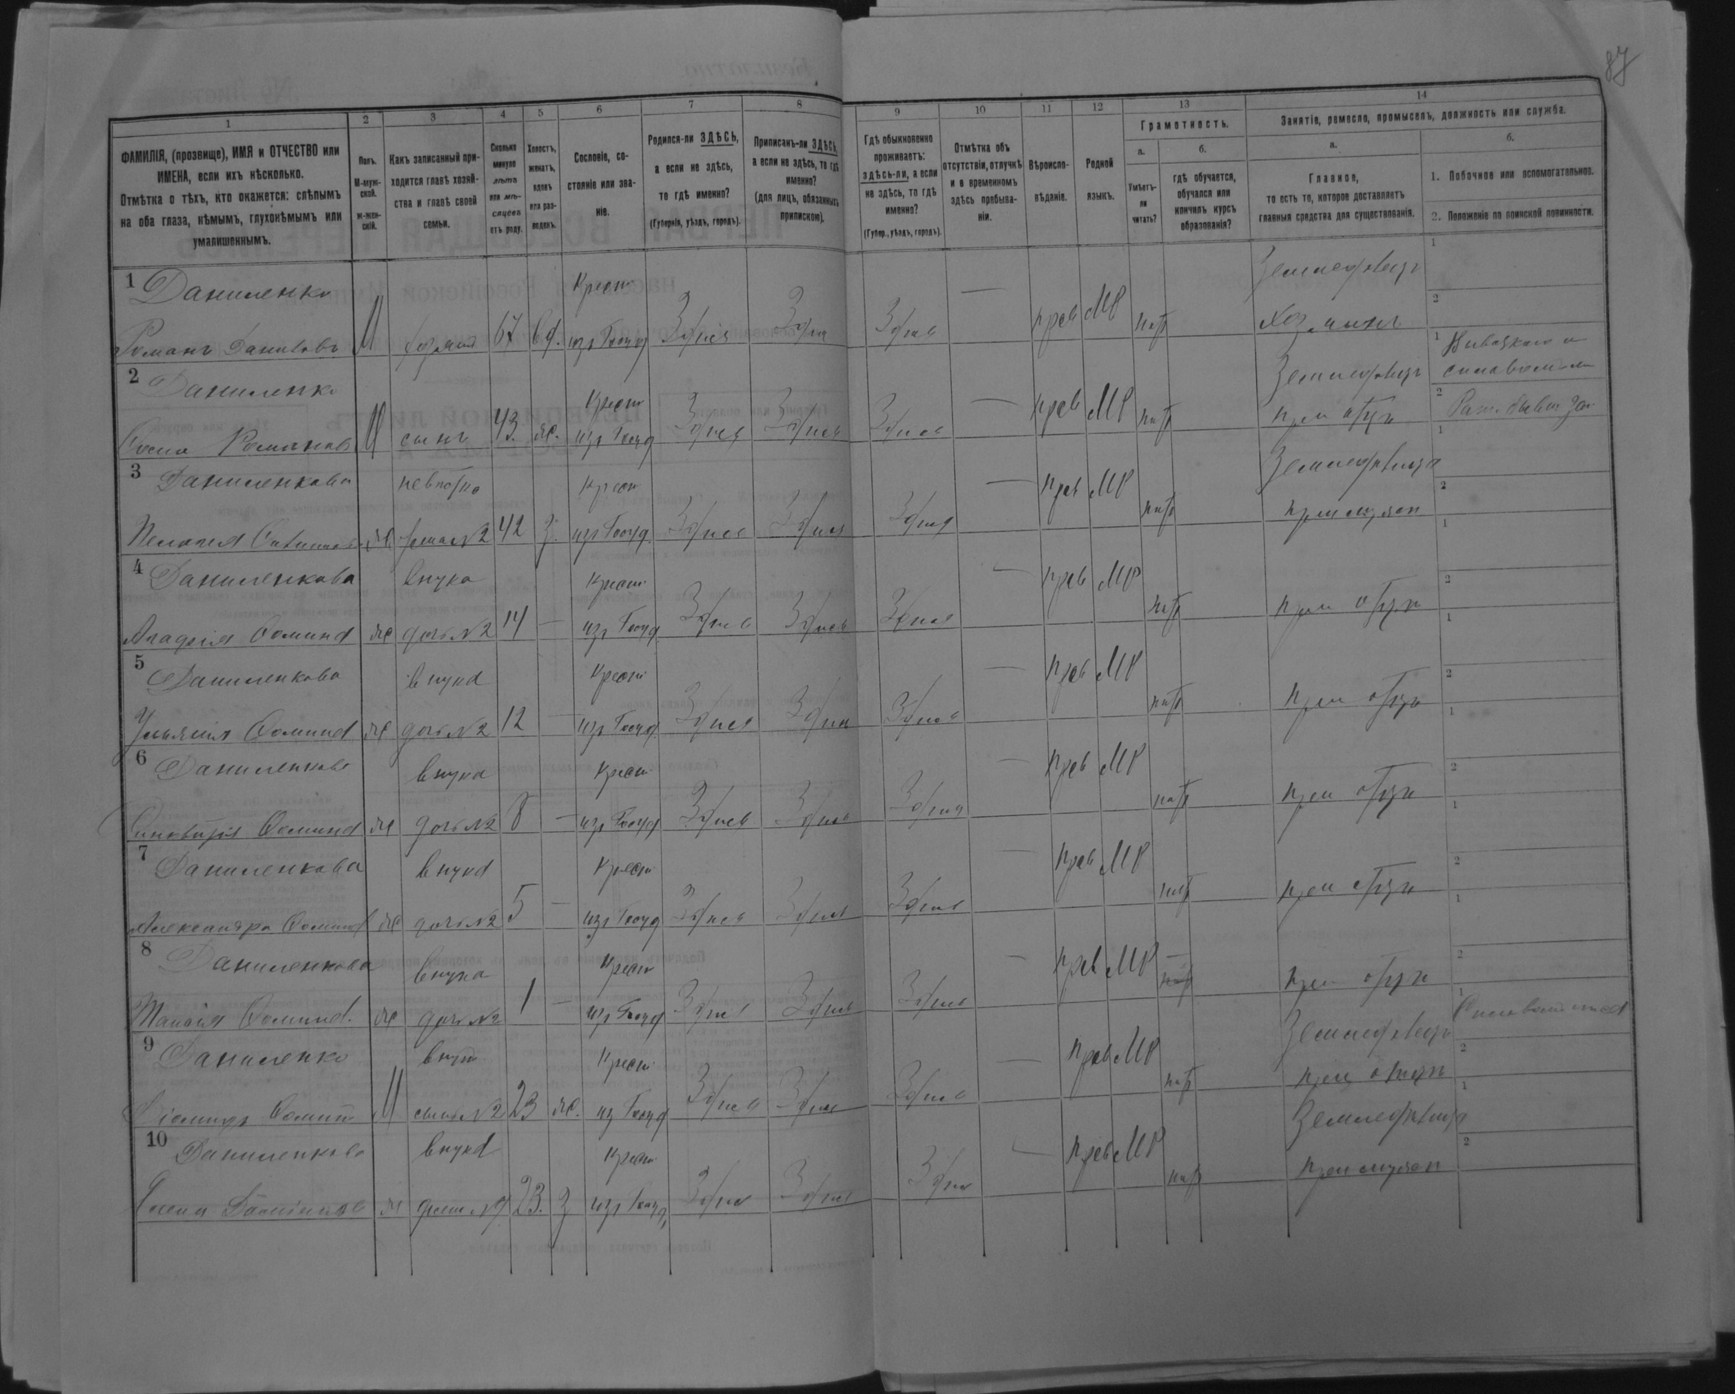 87
1
2
3
4
5
6
7
8
9
10
11
12
13
14
ФАМИЛІЯ, (прозвище), ИМЯ и ОТЧЕСТВО или ИМЕНА, если ихъ нѣсколько.
Отмѣтка о тѣхъ, кто окажется: слѣпымъ на оба глаза, нѣмымъ, глухонѣмымъ или умалишеннымъ.
Полъ.
М-муж-
ской.
ж-жен-
скій.
Какъ записанный при-
ходится главѣ хозяй-
ства и главѣ своей
семьи.
Сколько
минуло
лѣтъ
или мѣ-
сяцевъ
отъ роду.
Холостъ,
женатъ,
вдовъ
или раз-
веденъ.
Сословіе, со-
стояніе или зва-
ніе.
Родился-ли ЗДѢСЬ,
а если не здѣсь,
то гдѣ именно?
(Губернія, уѣздъ, городъ).
Приписанъ-ли ЗДѢСЬ,
а если не здѣсь, то гдѣ
именно?
(для лицъ, обязанныхъ
припискою).
Гдѣ обыкновенно
проживаетъ:
здѣсь-ли, а если
не здѣсь, то гдѣ
именно?
(Губер., уѣздъ, городъ).
Отмѣтка объ
отсутствіи, отлучкѣ
и о временномъ
здѣсь пребыва-
ніи.
Вѣроиспо-
вѣданіе.
Родной
языкъ.
Грамотность.
а.
Умѣетъ-
ли
читать?
б.
гдѣ обучается,
обучался или
кончилъ курсъ
образованія?
Занятіе, ремесло, промыселъ, должность или служба.
а.
Главное,
то есть то, которое доставляетъ
главныя средства для существованія.
б.
1. Побочное или вспомогательное.
2. Положеніе по воинской повинности.
1 Даниленко Крест Земледѣлецъ 1
Романъ Даниловъ М хозяинъ 67 вд. изъ Госуд Здѣсь Здѣсь Здѣсь — прав МР нѣтъ хозяинъ 2
2 Даниленко Крест Земледѣлецъ 1
Романовъ М сынъ 43. ж. изъ Госуд Здѣсь Здѣсь Здѣсь — прав МР нѣтъ при отцѣ 2
3 Даниленкова невѣстка Крест Земледѣлица 1
Пелагея ж жена №2 42 з. изъ Госуд Здѣсь Здѣсь Здѣсь — прав МР нѣтъ при мужѣ 2
4 Даниленкова внука Крест 1
Агафія Фомина ж дочь №2 14 — изъ Госуд Здѣсь Здѣсь Здѣсь — прав МР нѣтъ при отцѣ 2
5 Даниленкова внука Крест 1
Ульянія Фомина ж дочь №2 12 — изъ Госуд Здѣсь Здѣсь Здѣсь — прав МР нѣтъ при отцѣ 2
6 Даниленкова внука Крест 1
Фомина ж дочь №2 8 — изъ Госуд Здѣсь Здѣсь Здѣсь — прав МР нѣтъ при отцѣ 2
7 Даниленкова внука Крест 1
Александра Фомина ж дочь №2 5 — изъ Госуд Здѣсь Здѣсь Здѣсь — прав МР нѣтъ при отцѣ 2
8 Даниленкова внука Крест 1
Фомина. ж дочь №2 1 — изъ Госуд Здѣсь Здѣсь Здѣсь — прав МР — при отцѣ 2
9 Даниленко внукъ Крест Земледѣлецъ 1
Фоминъ М сынъ №2 23 ж. изъ Госуд Здѣсь Здѣсь Здѣсь — прав МР нѣтъ при отцѣ 2
10 Даниленкова внука Крест Земледѣлица 1
Елена ж жена №9 23. з изъ Госуд Здѣсь Здѣсь Здѣсь — прав МР нѣтъ при мужѣ 2